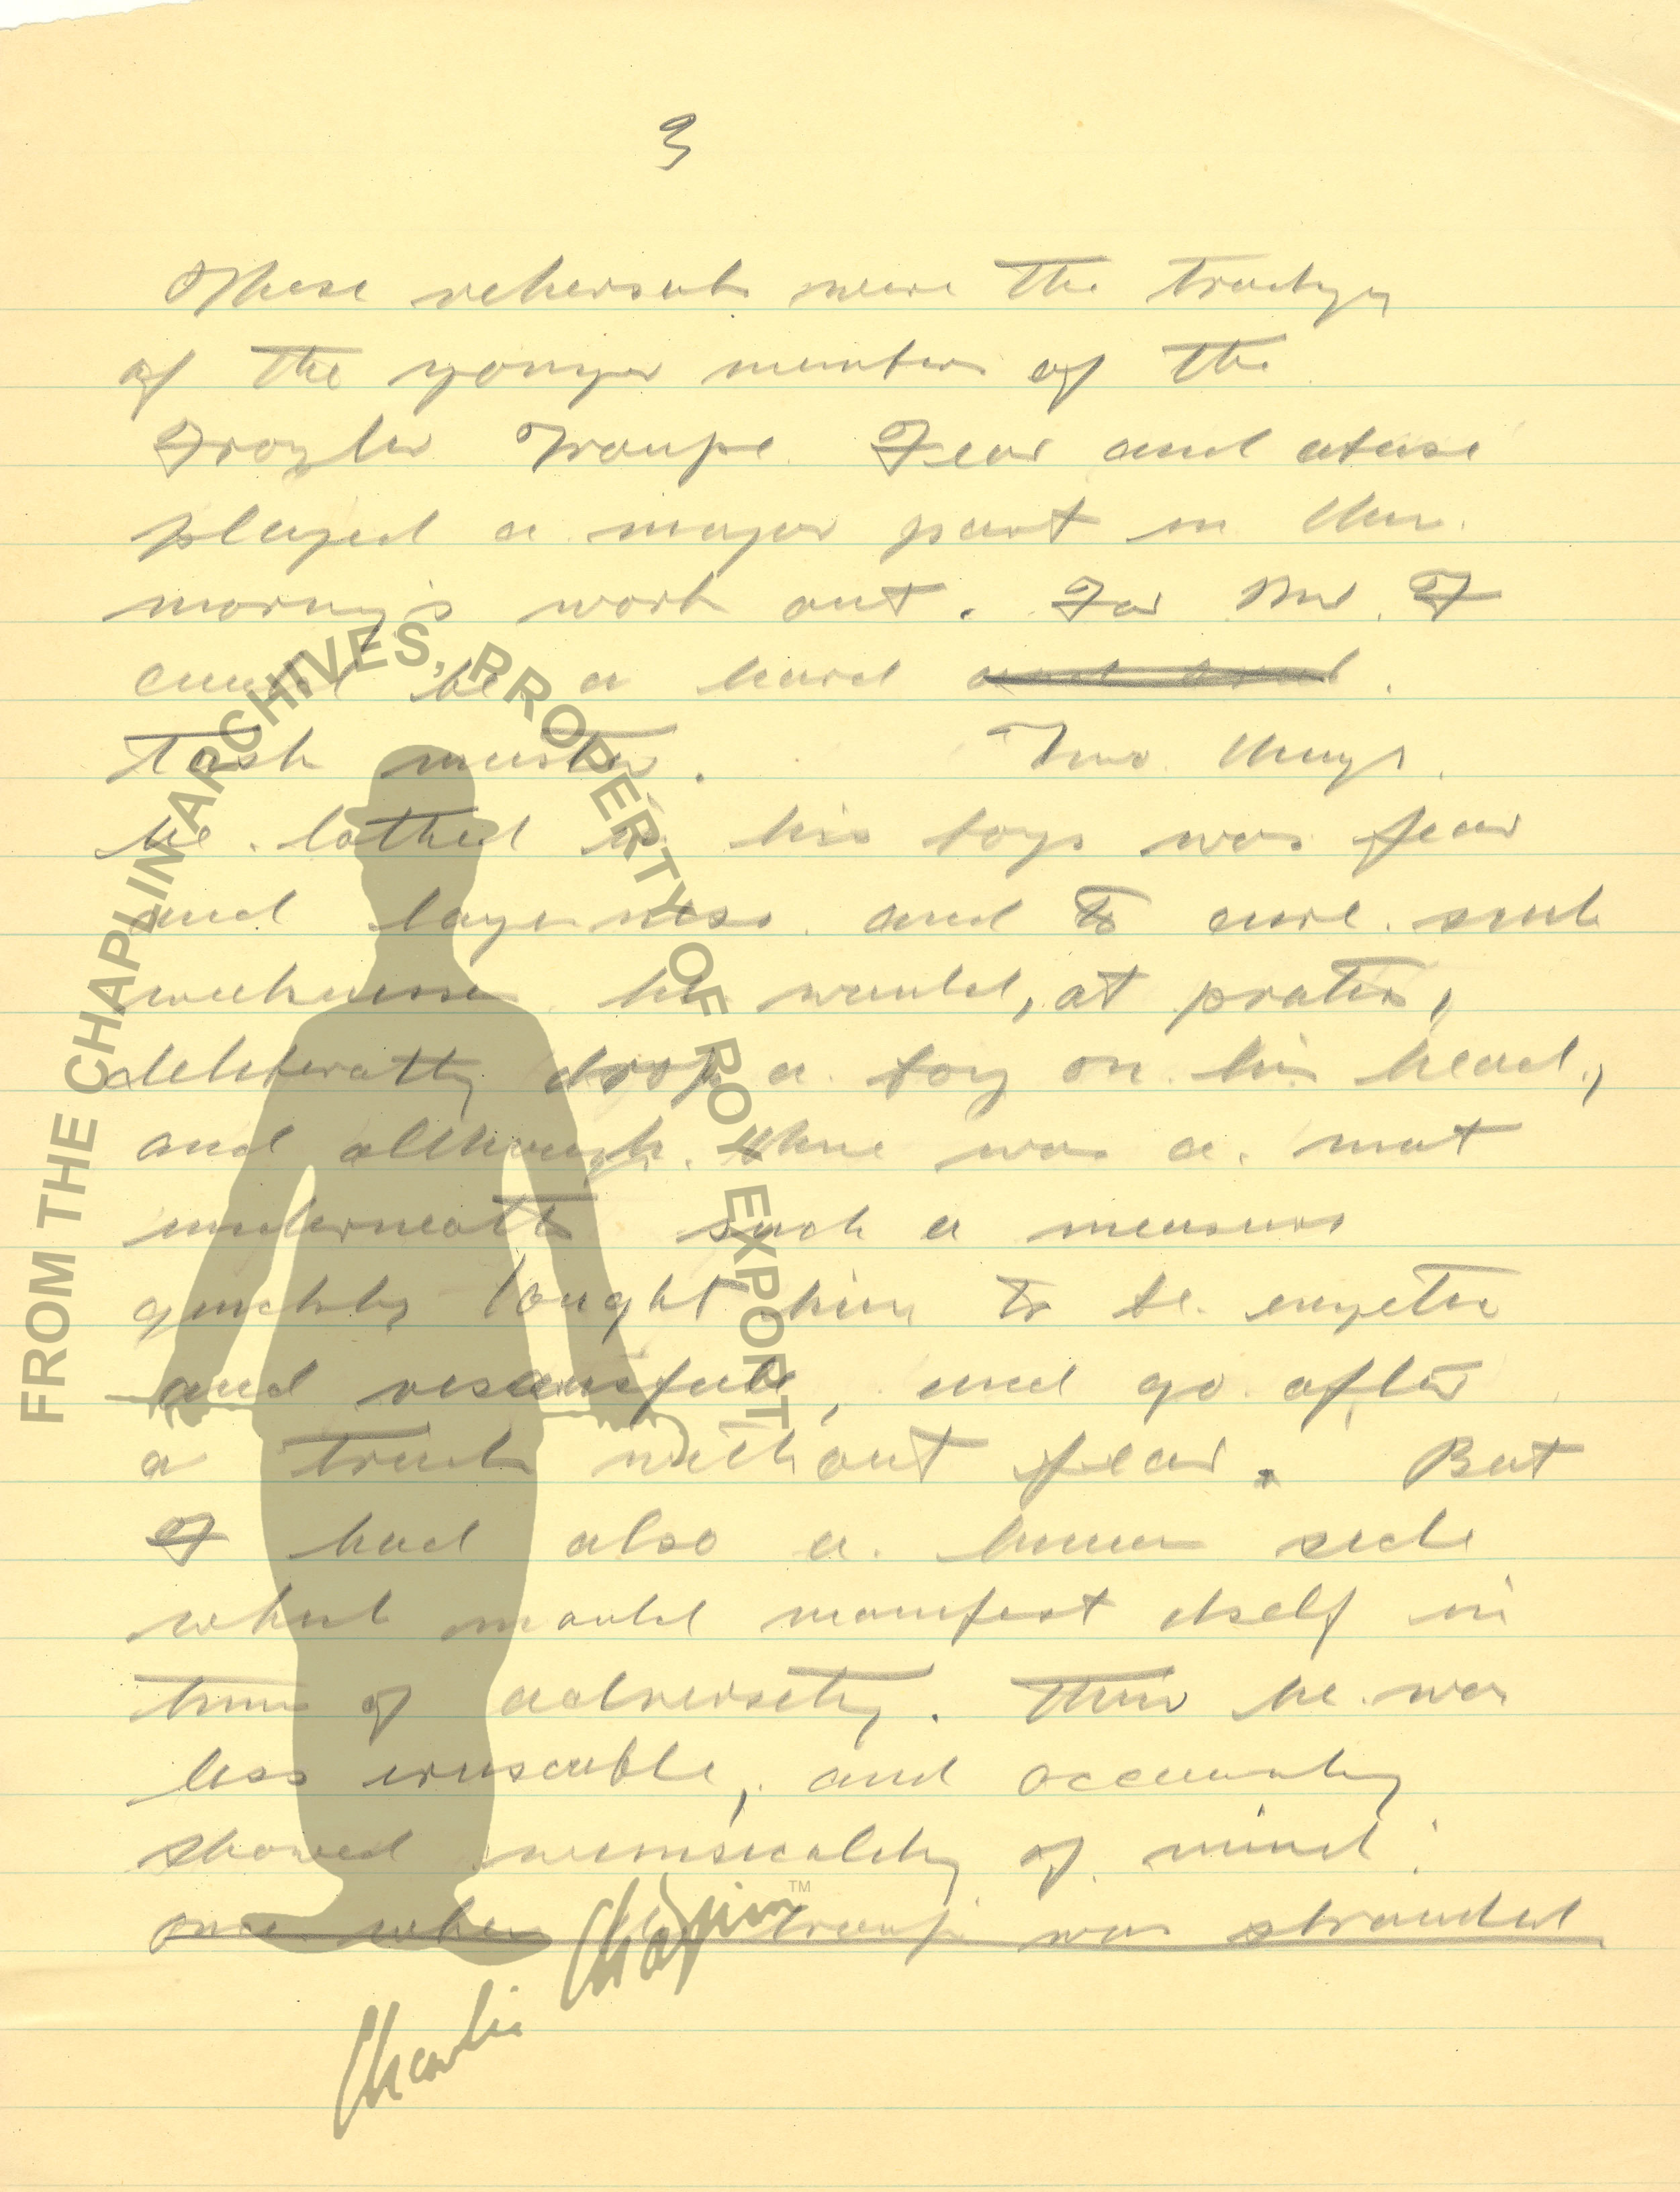 3
These rehersals were the tradgey
of the younger members of the
Frozler Troupe. Fear and abuse
played a major part in their
morning's work out. For Mr. F
could be a hard
task master. Two things
he lothed in his boys was fear
and layeness and to cure such
weeknesses he would, at pratice,
deliberatly drop a boy on his head,
and although there was a mat
underneath such a measure
quickly tought him to be
and resourseful, and go after
a trick without fear. But
F had also a human side
which would manifest itself in
times of adversity. Then he was
less irruscable, and occasionaly
showed wimsicality of mind:
once when his troupe was stranded
FROM THE CHAPLIN ARCHIVES, PROPERTY OF ROY EXPORT
Charlie Chaplin™